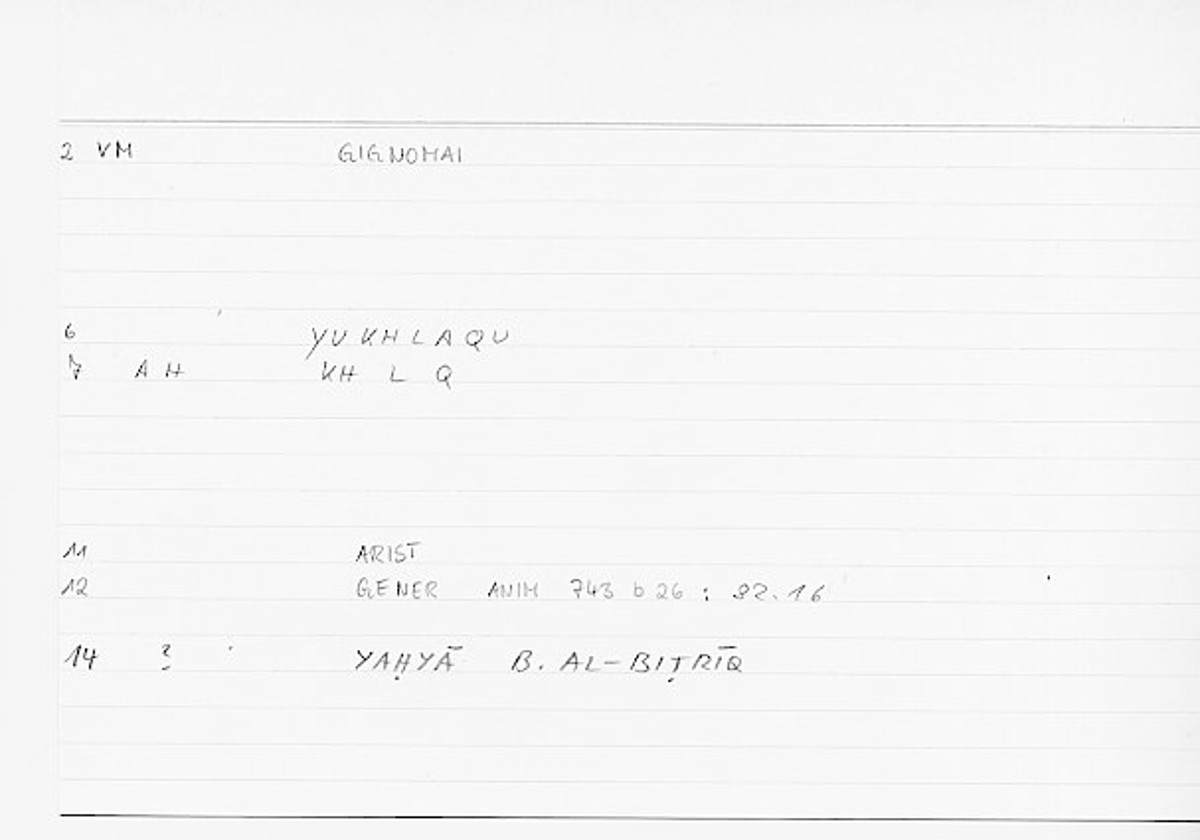 2 VM GIGNOMAI
6 YUKHLAQU
7 A H KH L Q
11 ARIST
12 GENER ANIM 743 b 26 : 92.16
14 ? YAḤYĀ B. AL-BIṬRĪQ